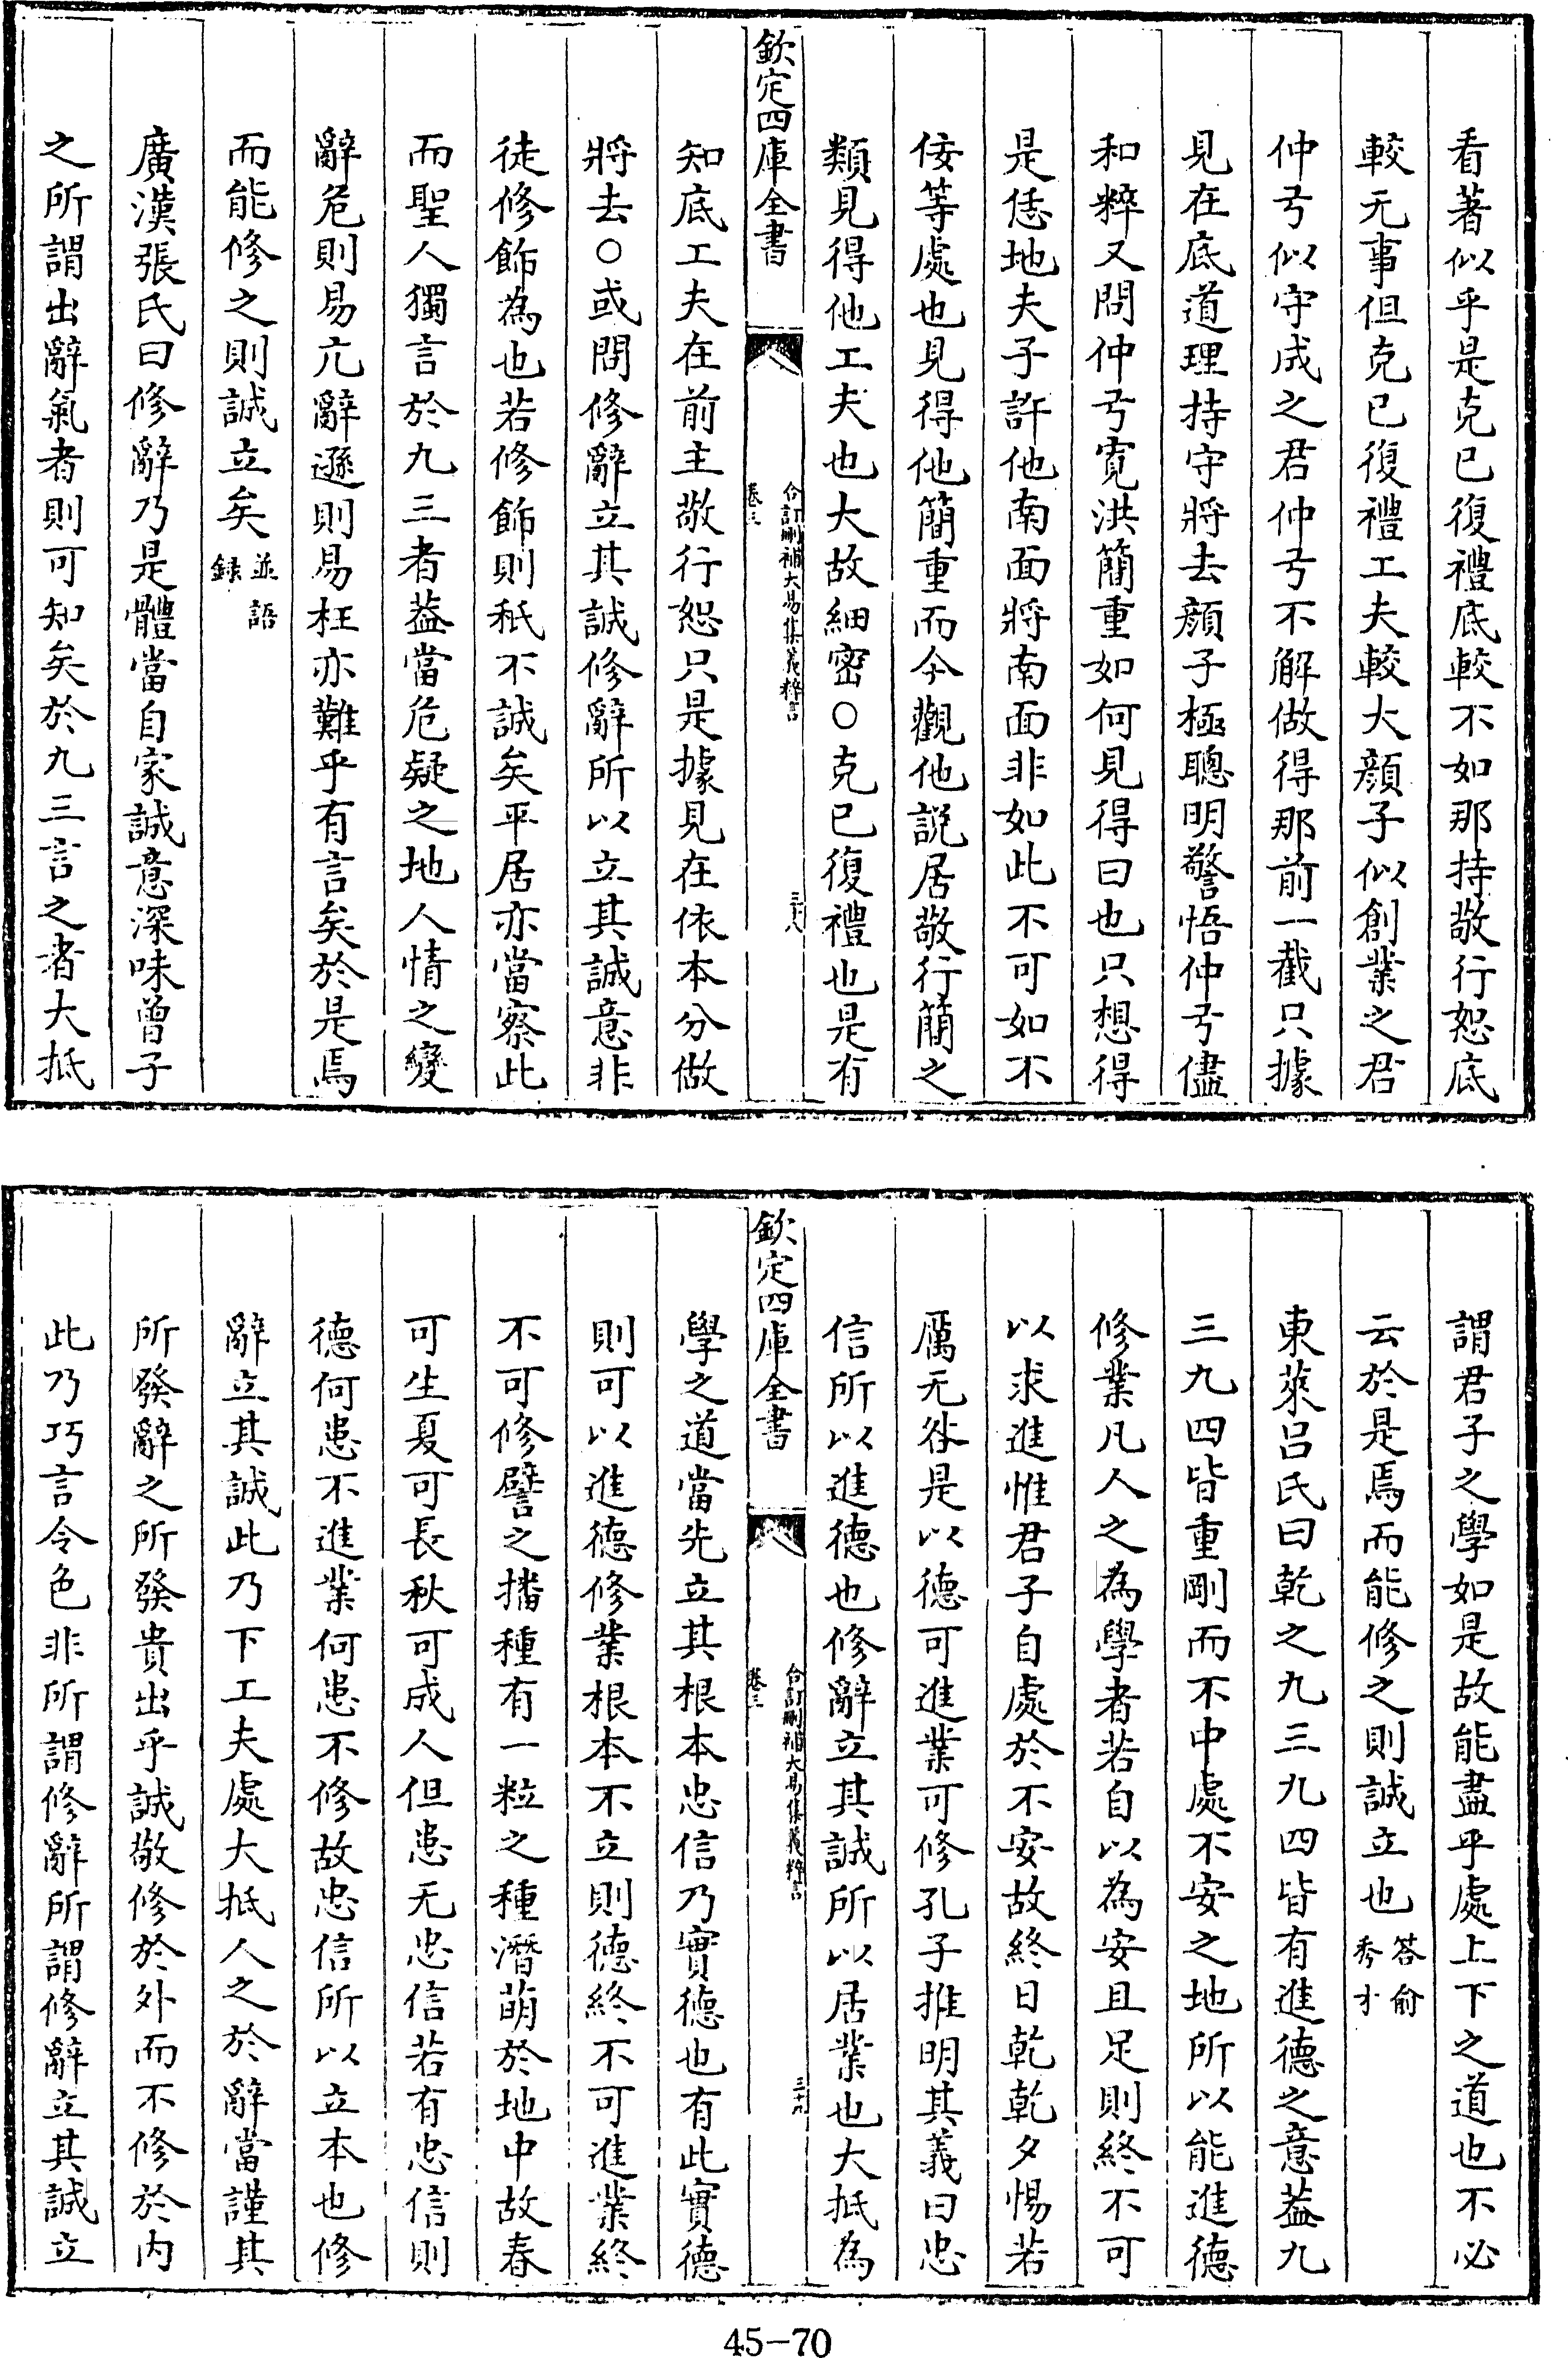 看著似乎是克已復禮底較不如那持敬行恕底
較无事但克已復禮工夫較大顔子似創業之君
仲弓似守成之君仲弓不解做得那前一截只據
見在底道理持守將去顔子極聰明警悟仲弓儘
和粹又問仲弓寛洪簡重如何見得曰也只想得
是恁地夫子許他南面將南面非如此不可如不
佞等處也見得他簡重而今觀他説居敬行簡之
類見得他工夫也大故細密○克已復禮也是有
欽定四庫全書
合訂刪補大易集義粹言
卷三
三十八
知底工夫在前主敬行恕只是據見在依本分做
將去○或問修辭立其誠修辭所以立其誠意非
徒修飾為也若修飾則秖不誠矣平居亦當察此
而聖人獨言於九三者葢當危疑之地人情之變
辭危則易亢辭遜則易枉亦難乎有言矣於是焉
而能修之則誠立矣並語
録
廣漢張氏曰修辭乃是體當自家誠意深味曾子
之所謂出辭氣者則可知矣於九三言之者大抵
謂君子之學如是故能盡乎處上下之道也不必
云於是焉而能修之則誠立也答俞
秀才
東萊吕氏曰乾之九三九四皆有進德之意葢九
三九四皆重剛而不中處不安之地所以能進德
修業凡人之為學者若自以為安且足則終不可
以求進惟君子自處於不安故終日乾乾夕惕若
厲无咎是以德可進業可修孔子推明其義曰忠
信所以進德也修辭立其誠所以居業也大抵為
欽定四庫全書
合訂刪補大易集義粹言
卷三
三十九
學之道當先立其根本忠信乃實德也有此實德
則可以進德修業根本不立則德終不可進業終
不可修譬之播種有一粒之種潛萌於地中故春
可生夏可長秋可成人但患无忠信若有忠信則
德何患不進業何患不修故忠信所以立本也修
辭立其誠此乃下工夫處大抵人之於辭當謹其
所發辭之所發貴出乎誠敬修於外而不修於内
此乃巧言令色非所謂修辭所謂修辭立其誠立
45-70